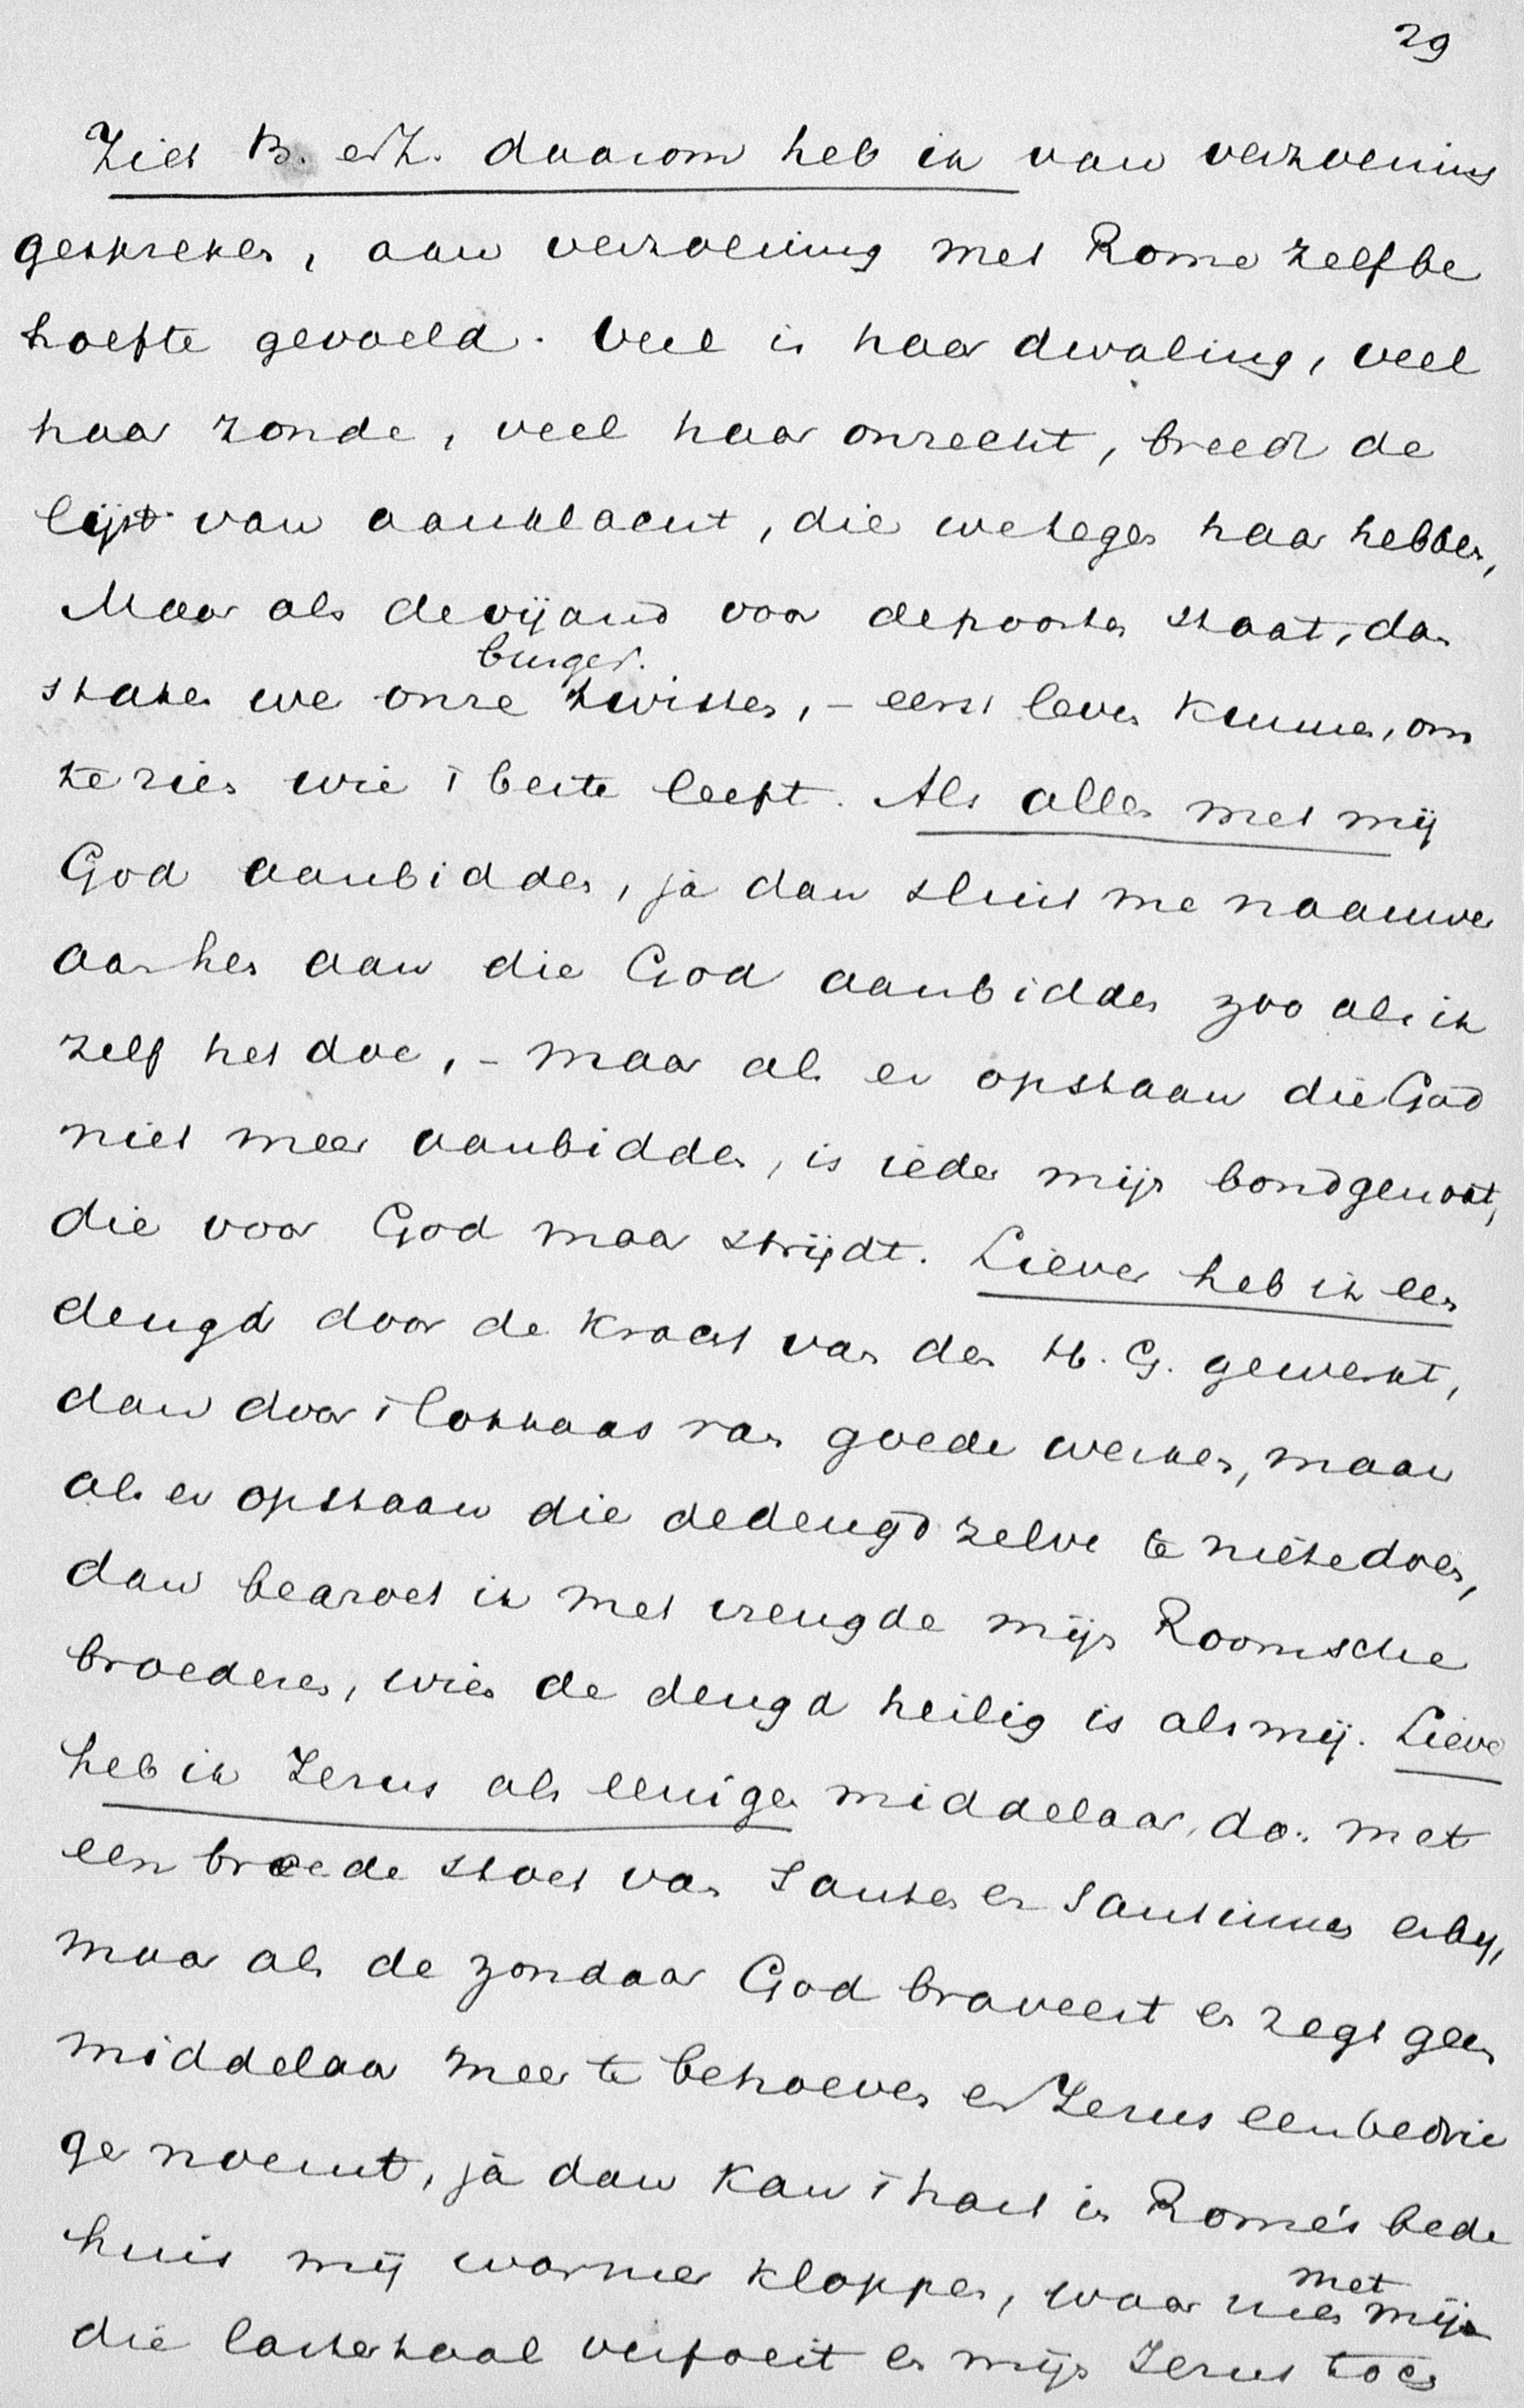 29
Ziet B. e Z. daarom heb ik van verzoening
gesproken, aan verzoening met Rome zelf be
hoefte gevoeld. Veel is haar dwaling, veel
haar zonde, veel haar onrecht, breed de
lijst van aanklacht, die we tegen haar hebben,
Maar als de vijand voor de poorten staat, dan
burger.
staken we onze twisten, – eerst leven kunnen, om
te zien wie 't beste leeft. Als allen met mij
God aanbidden, ja dan sluit me naauwer
aan hen aan die God aanbidden zoo als ik
zelf het doe, – maar als er opstaan die God
niet meer aanbidden, is ieder mijn bondgenoot,
die voor God maar strijdt. Liever heb ik een
deugd door de kracht van den H. G. gewerkt,
dan door 't lokkaas van goede werken, maar
als er opstaan die de deugd zelve te niete doen,
dan begroet ik met vreugde mijn Roomsche
broederen, wien de deugd heilig is als mij. Liever
heb ik Jezus als eenigen middelaar, dan met
een breede stoet van Santen en Santinnen erbij,
maar als de zondaar God braveert en zegt geen
middelaar meer te behoeven en Jezus een bedrie
ger noemt, ja dan kan 't hart in Rome's bede
huis mij warmer kloppen, waar men
met
mij
die lastertaal verfoeit en mijn Jezus toch